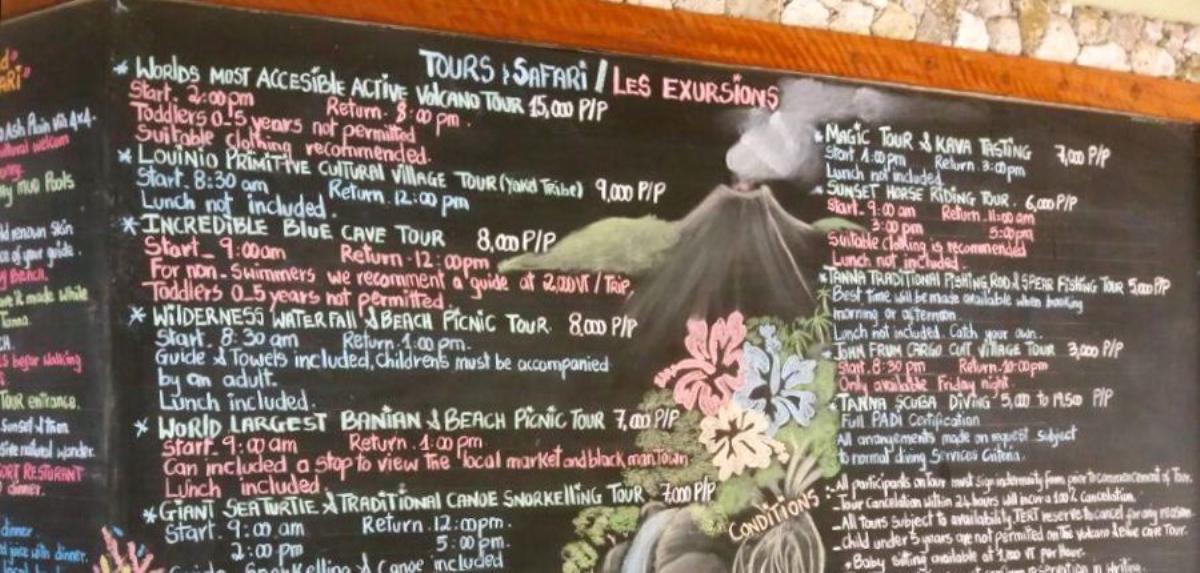 TOURS & SAFARI / LES EXURSIONS
* WORLDS MOST ACCESIBLE ACTIVE VOLCANO TOUR 15,000 P/P
Start. 2:00 pm Return. 8:00 pm.
Toddlers 0_5 years not permitted
Suitable clothing recommended.
* LOUINIO PRIMITIVE CULTURAL VILLAGE TOUR (Yakel Tribe) 9,000 P/P
Start. 8:30 am Return. 12:00 pm
Lunch not included.
* INCREDIBLE BLUE CAVE TOUR 8,000 P/P
Start_ 9:00am Return. 12:00pm
For non-Swimmers we recomment a guide at 2,000VT / Trip.
Toddlers 0_5 years not permitted.
* WILDERNESS WATERFALL & BEACH PICNIC TOUR. 8,000 P/P
Start. 8:30 am Return. 1:00 pm.
Guide & Towels included, Childrens must be accompanied
by an adult.
Lunch included.
* WORLD LARGEST BANIAN & BEACH PICNIC TOUR 7,000 P/P
Start_ 9:00 am Return. 1:00 pm
Can included a stop to view the local market and black man town
Lunch included.
* GIANT SEA TURTLE & TRADITIONAL CANOE SNORKELLING TOUR 7,000 P/P
Start. 9:00 am Return. 12:00pm.
2:00 pm 5:00 pm.
Snorkelling & Canoe included
* MAGIC TOUR & KAVA TASTING 7,000 P/P
Start. 1:00 pm Return. 3:00pm
Lunch not included
* SUNSET HORSE RIDING TOUR. 6,000 P/P
Start_ 9:00 am Return. 11:00 am
3:00 pm 5:00pm
Suitable clothing is recommended
Lunch not included.
* TANNA TRADITIONAL FISHING ROD & SPEAR FISHING TOUR 5,000 P/P
Best Time will be made available when booking
morning or afternoon.
Lunch not included. Catch your own.
JOHN FRUM CARGO CULT VILLAGE TOUR 3,000 P/P
Start. 8:30 pm Return. 10:00pm
Only available Friday night.
* TANNA SCUBA DIVING 5,000 to 19,500 P/P
Full PADI Certification
All arrangements made on request subject
to normal diving Services Criteria.
CONDITIONS :- All participants on Tour must sign indemnity from prior to commencement of Tour.
- Tour Cancelation within 24 hours will incur a 100% Cancelation.
- All Tours subject to availability, TERT reserve to cancel for any reason
- child under 5 years are not permitted on the Volcano & Blue cave Tour.
* Baby Sitting available at 1,000 VT per Hour.
reservation in Writing.
Ash Plain Via 4x4.
welcom
mud Pools
of your guide.
Beach.
made while
Tanna.
before walking
Tour entrance.
Sunset
natural wonder.
RESTURANT
dinner.
dinner
juice with dinner.